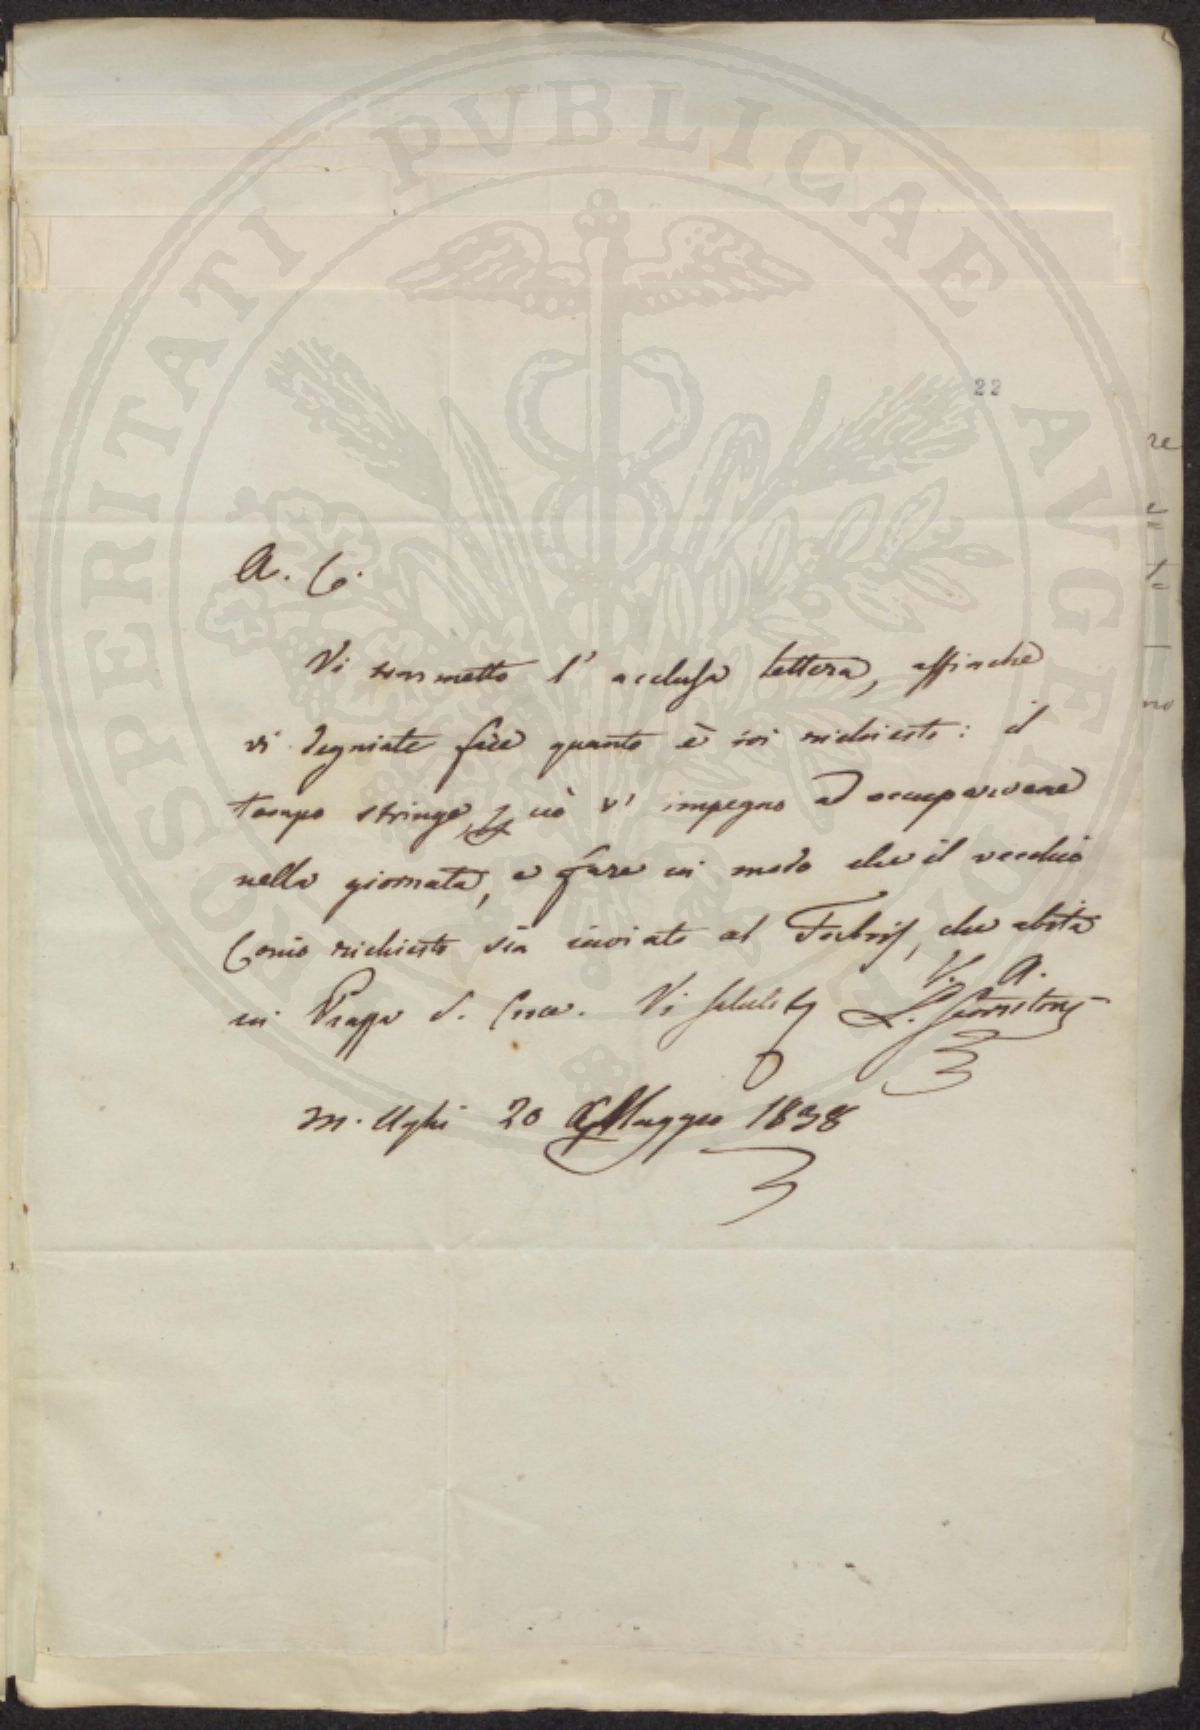 22
A. C.
Vi trasmetto l' acclusa lettera, affinche
vi degniate fare quanto è ivi richiesto: il
tempo stringe, e ciò vi impegno ad occuparvene
nella giornata, e fare in modo che il vecchio
Conio richiesto sia inviato al Fabris, che abita
in Piazza S. Croce. Vi saluto
V. A.
L.
M. Ughi 20 Maggio 1838
PROSPERITATI PVBLICAE AVGENDAE